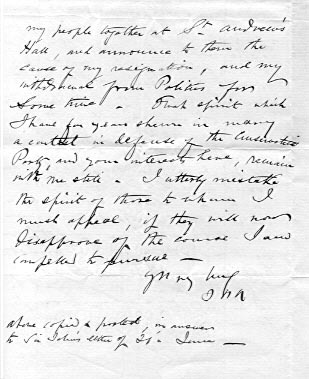 my people together at St. Andrew's
Hall, and announce to them the
cause of my resignation, and my
withdrawal from Politics for
some time - That spirit which
I have for years shewn in many
a contest in defense of the Conservative
Party, and your interest here, remain
with me still - I utterly mistake
the spirit of those to whom I
must appeal, if they will now
disapprove of the course I am
compelled to pursue -
Yrs very truly
above copied & posted, in answer
to Sir John's letter of 21st June -